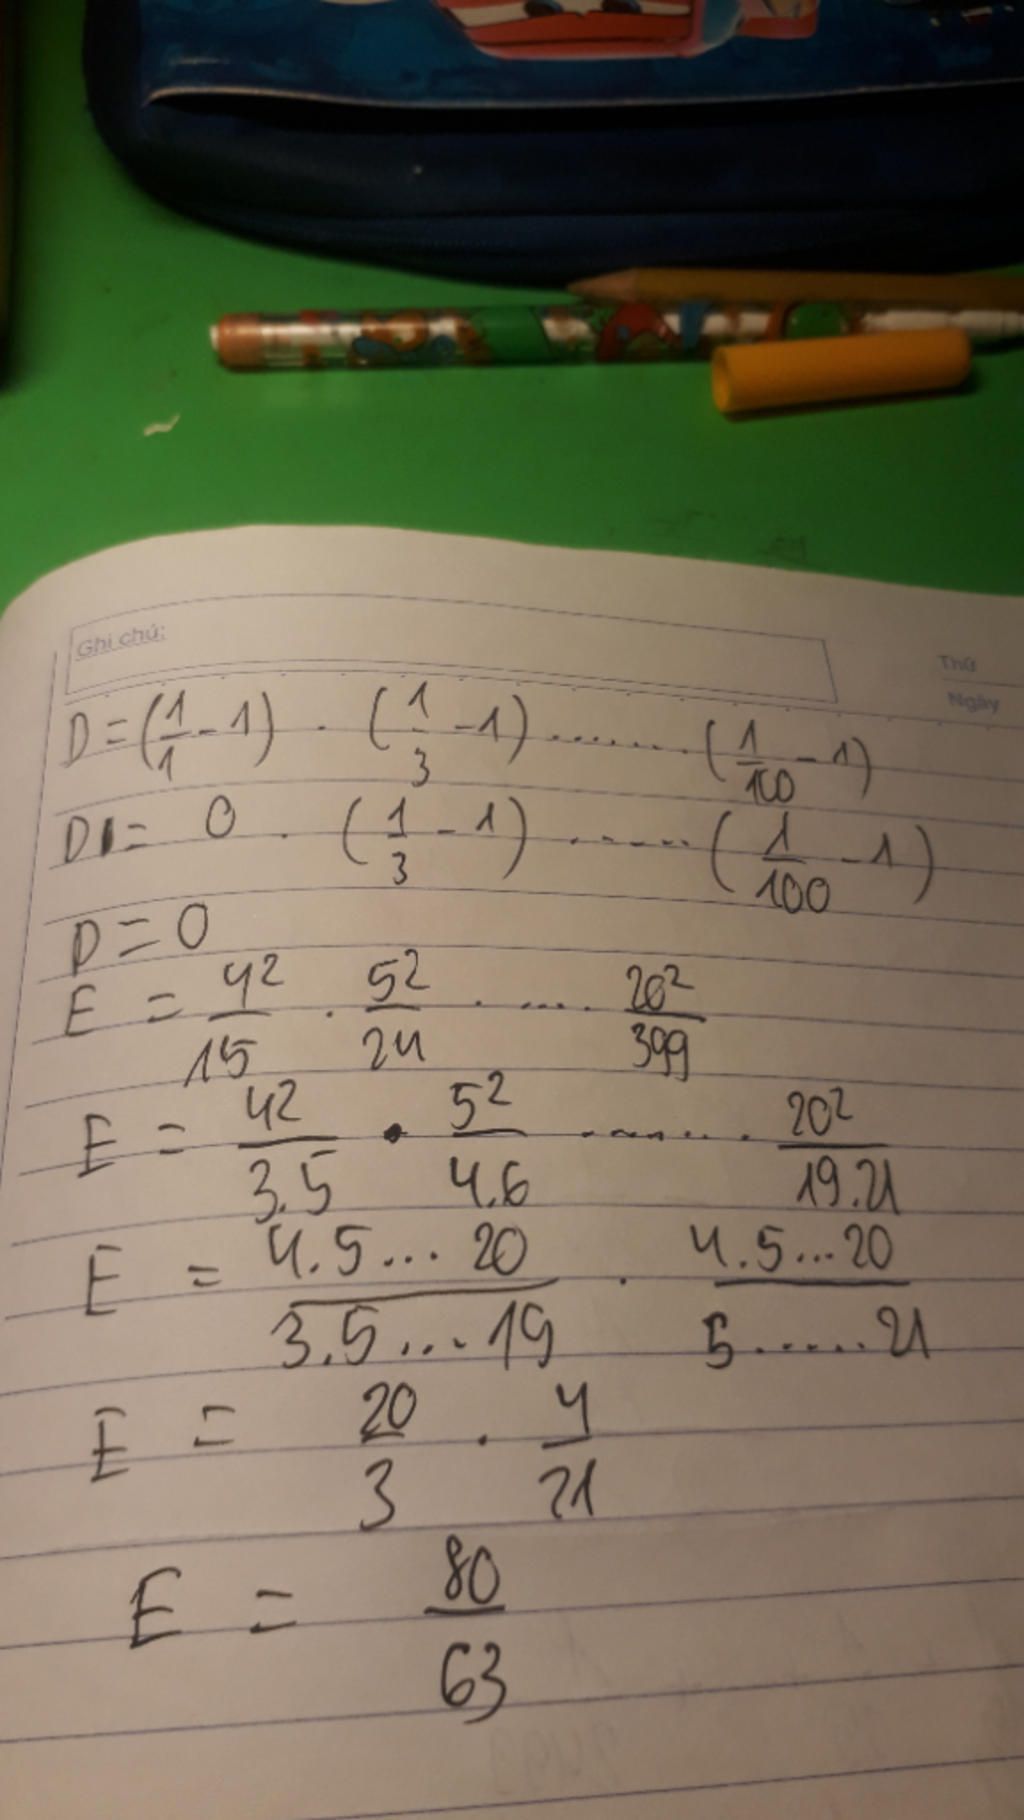 Ghi chú:
Thứ
Ngày
D = (1/1 - 1) . (1/3 - 1) ....... (1/100 - 1)
D = 0 . (1/3 - 1) ...... (1/100 - 1)
D = 0
E = 4²/15 . 5²/24 . .... 20²/399
E = 4²/3.5 . 5²/4.6 ....... 20²/19.21
E = 4.5...20/3.5...19 . 4.5...20/5......21
E = 20/3 . 4/21
E = 80/63